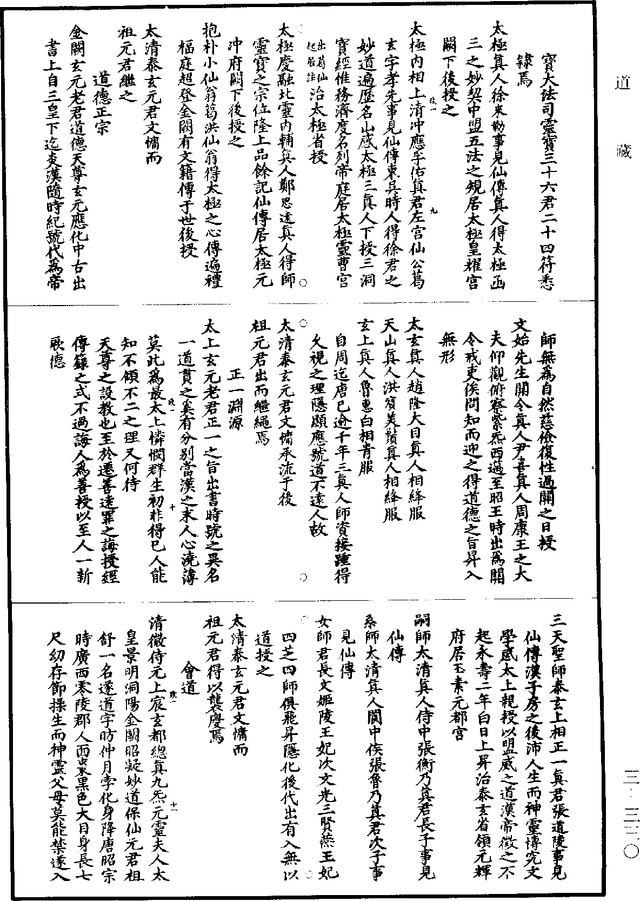 道藏
寶大法司靈寶三十六君二十四符悉
隸焉
太極真人徐來勒事見仙傳真人得太極函
三之妙契中盟五法之規居太極皇曜宮
闕下後授之
太極內相上清沖應孚佑真君左宮仙公葛
玄字孝先事見仙傳東吳時人得徐君之
妙道遍歷名山感太極三真人下授三洞
寶經惟務濟度名列帝庭居太極靈曹宮
出葛仙起居注治太極省授
太極慶融北靈內輔真人鄭思遠真人得師
靈寶之宗位隆上品餘記仙傳居太極元
沖府闕下後授之
抱朴小仙翁葛洪仙翁得太極之心傳遍禮
福庭超登金闕有文籍傳于世後授
太清泰玄元君文慵而
祖元君繼之
道德正宗
金闕玄元老君道德天尊玄元應化中古出
書上自三皇下迄炎漢隨時紀號代為帝
師無為自然慈儉復性過關之日授
文始先生關令真人尹喜真人周康王之大
夫仰觀俯察紫炁西邁至昭王時出為關
令戒吏俟問知而迎之得道德之旨昇入
無形
太玄真人趙隆大目真人相絳服
天山真人洪質美鬚真人相絳服
玄上真人魯惠白相青服
自周迄唐已逾千年三真人師資接踵得
久視之理隱顯應號道不遠人故
太清泰玄元君文慵承流于後
祖元君出而繼繩焉
正一淵源
太上玄元老君正一之旨出書時號之異名
一道貫之奚有分別當漢之末人心澆薄
莫此為最太上憐憫群生初非得已人能
知不傾不二之理又何待
天尊之設教也至於遷善遠罪之誨授經
傳籙之式不過誨人為善授以至人一新
厥德
三天聖師泰玄上相正一真君張道陵事見
仙傳漢子房之後沛人生而神靈博究文
學感太上親授以盟威之道漢帝徵之不
起永壽二年白日上昇治泰玄省領元輝
府居玉素元都宮
嗣師太清真人侍中張衡乃真君長子事見
仙傳
系師太清真人閬中侯張魯乃真君次子事
見仙傳
女師君長文姬陵王妃次文光三賢燕王妃
四芝四師俱飛昇隱化後代出有入無以
道授之
太清泰玄元君文慵而
祖元君得以襲慶焉
會道
清微侍元上宸玄都總真九炁元靈夫人太
皇景明洞陽金闕昭凝妙道保仙元君祖
舒一名遂道字昉仲月孛化身降唐昭宗
時廣西零陵郡人而紫黑色大目身長七
尺幼存節操生而神靈父母莫能禁遂入
三·三三〇